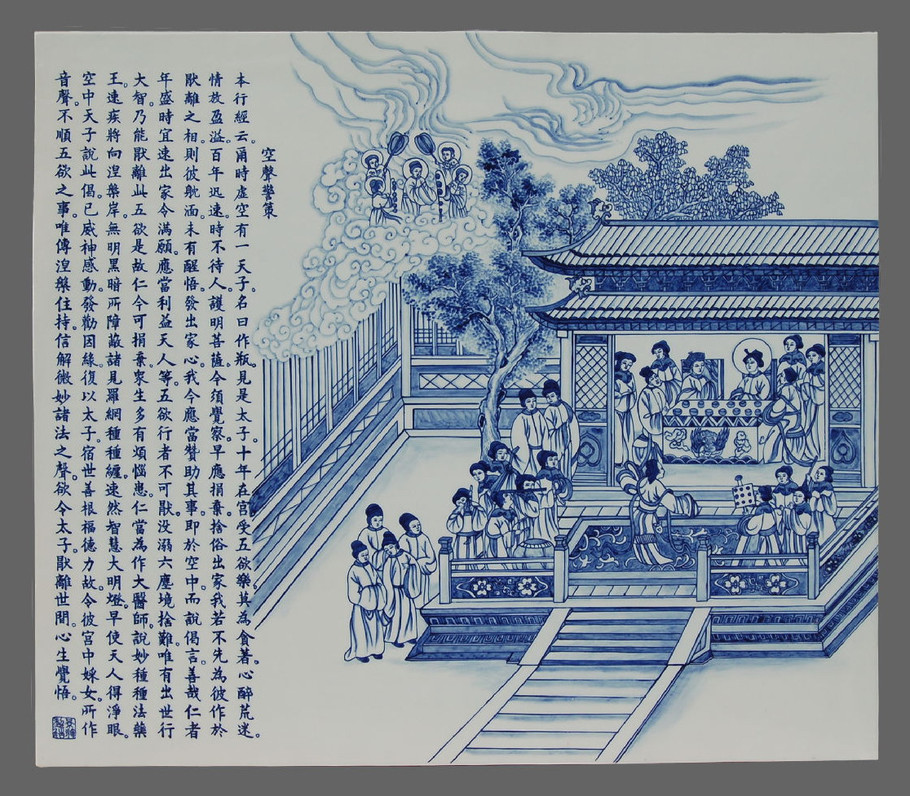 空聲警策
本行經云。爾時虛空有一天子。名曰作瓶。見是太子。十年在宮受五欲樂。莫為食著。心醉荒迷。
情放盈溢。百年迅速。時不待人。護明菩薩。今須覺察。早應捐棄捨俗出家。我若不先為彼作於
猒離之相。則彼躭湎。未有醒悟發出家心。我今應當贊助其事。即於空中。而說偈言。善哉仁者
年盛時宜速出家。令滿願。應當利益天人等。五欲行者不可猒。没溺六塵境捨難。唯有出世行
大智。乃能猒離此五欲。是故仁今可捐棄。衆生多有煩惱患。仁當為作大醫師。說妙種種法藥
王。速疾將向涅槃岸。無明黑暗所障蔽。諸見羅網種種纏。速然智慧大明燈。早使天人得淨眼。
空中天子說此偈。已威神感動。發勸因緣。復以太子宿世善根福德力故。令彼宮中婇女所作
音聲。不順五欲之事。唯傳涅槃住持。信解微妙諸法之聲。欲令太子猒離世間。心生覺悟。